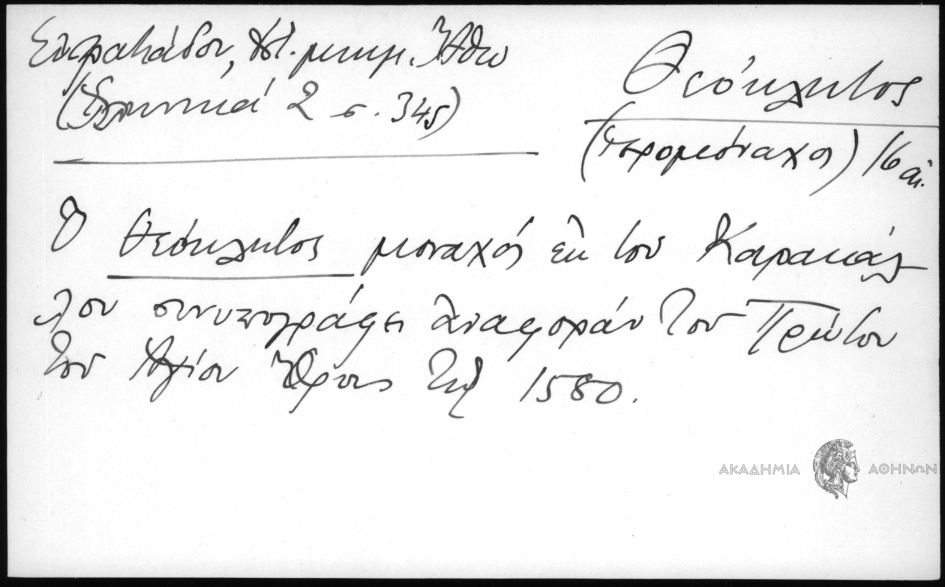 Ευστρατιάδου, Ιστ. μνημ. Άθω
(Ελληνικά 2 σ. 345)
Θεόκλητος
(ιερομόναχος) 16 αι.
Ο Θεόκλητος μοναχός εκ του Καρακάλ
λου συνυπογράφει αναφοράν του Πρώτου
του Αγίου Όρους τῳ 1580.
ΑΚΑΔΗΜΙΑ ΑΘΗΝΩΝ